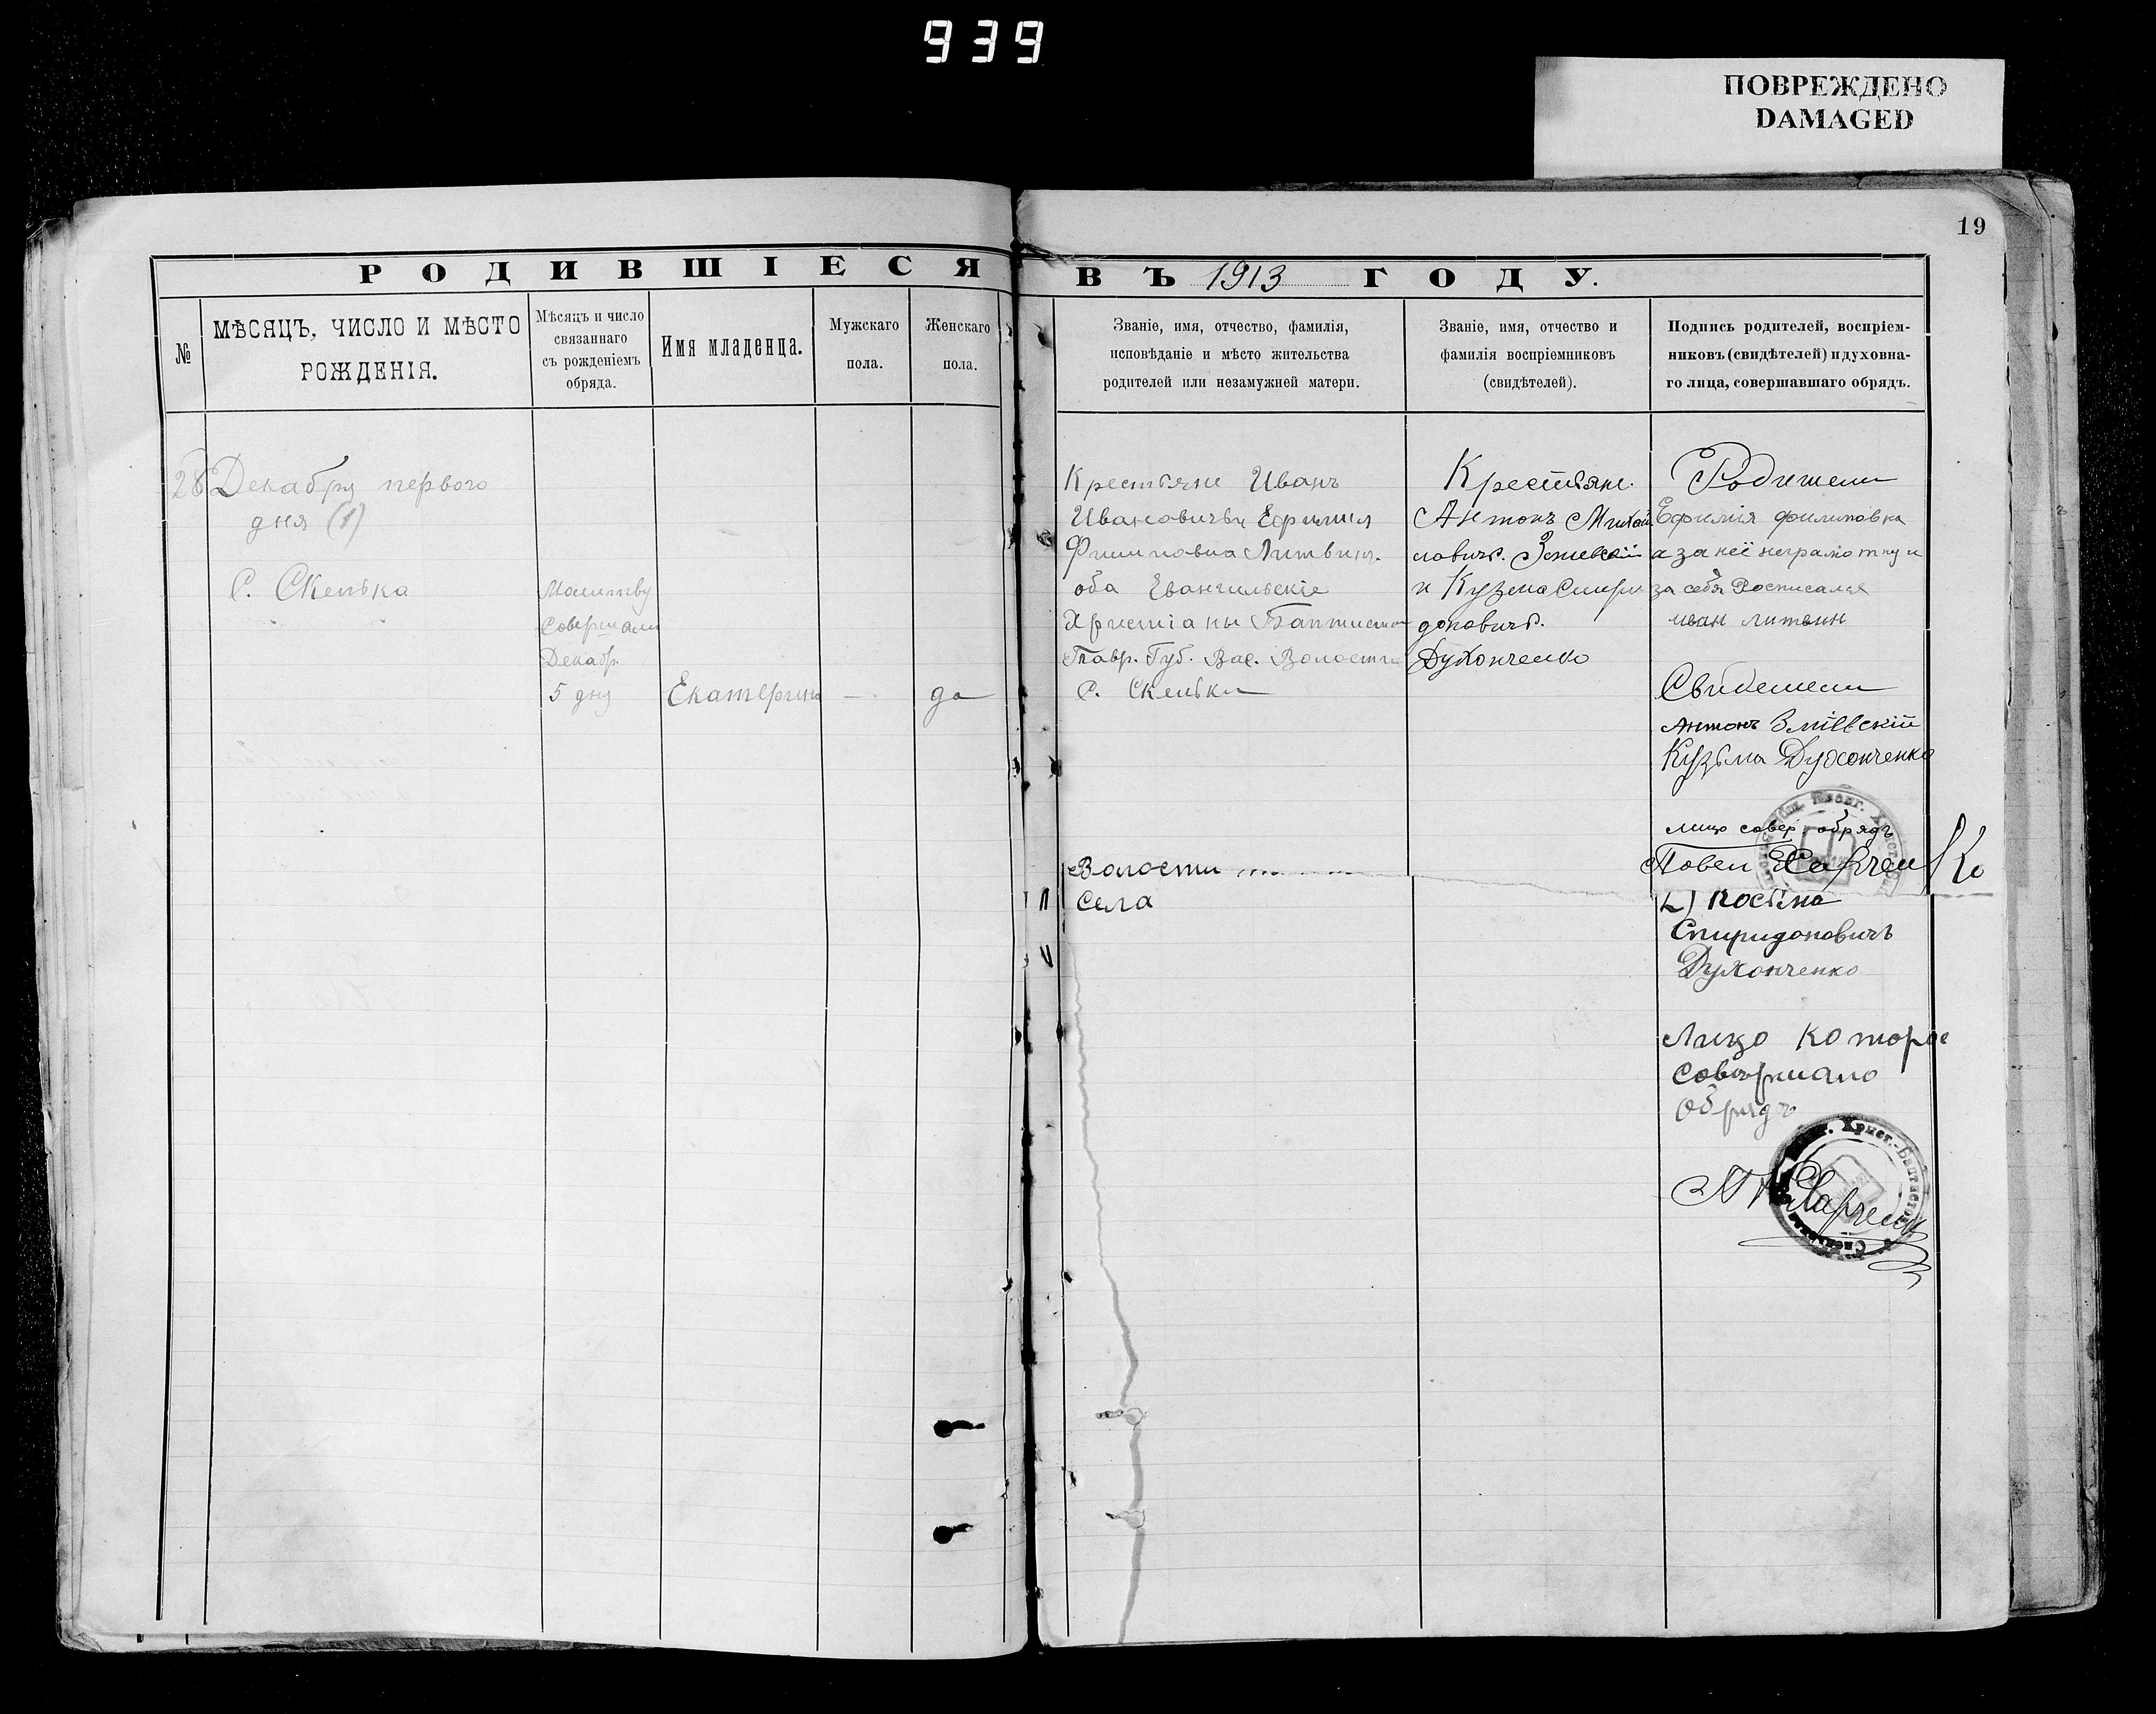 939
ПОВРЕЖДЕНО
DAMAGED
19
РОДИВШІЕСЯ ВЪ 1913 ГОДУ.
№
МѢСЯЦЪ, ЧИСЛО И МѢСТО
РОЖДЕНІЯ.
Мѣсяцъ и число
связаннаго
съ рожденіемъ
обряда.
Имя младенца.
Мужскаго
пола.
Женскаго
пола.
Званіе, имя, отчество, фамилія,
исповѣданіе и мѣсто жительства
родителей или незамужней матери.
Званіе, имя, отчество и
фамилія воспріемниковъ
(свидѣтелей).
Подпись родителей, воспріем-
никовъ (свидѣтелей) и духовна-
го лица, совершавшаго обрядъ.
28
Декабря первого
дня (1)
С. Скелька
Молитву
Совершали
Декабр.
5 дня
Екатерина
—
да
Крестьяне Иванъ
Ивановичъ Ефимия
Филиповна Литвин.
оба Евангильскіе
Христіаны Баптисты
Тавр. Губ. Вас. Волости
С. Скельки
Крестьяне.
Антонъ Михай
ловичъ. Змиевскій
и Кузма Спири
доновичъ.
Духонченко
Родители
Ефимія филиповна
а за неё неграмотну и
за себя Росписался
иван литвин
Свидетели
Антонъ Зміевскій
Кузьма Духонченко
лицо совер. обрядъ
Павел Харченко
Волости
Села
Спиридоновичъ
Духонченко
Лицо которое
Совершало
Обрядъ
Харченко
Христ.-Баптистов